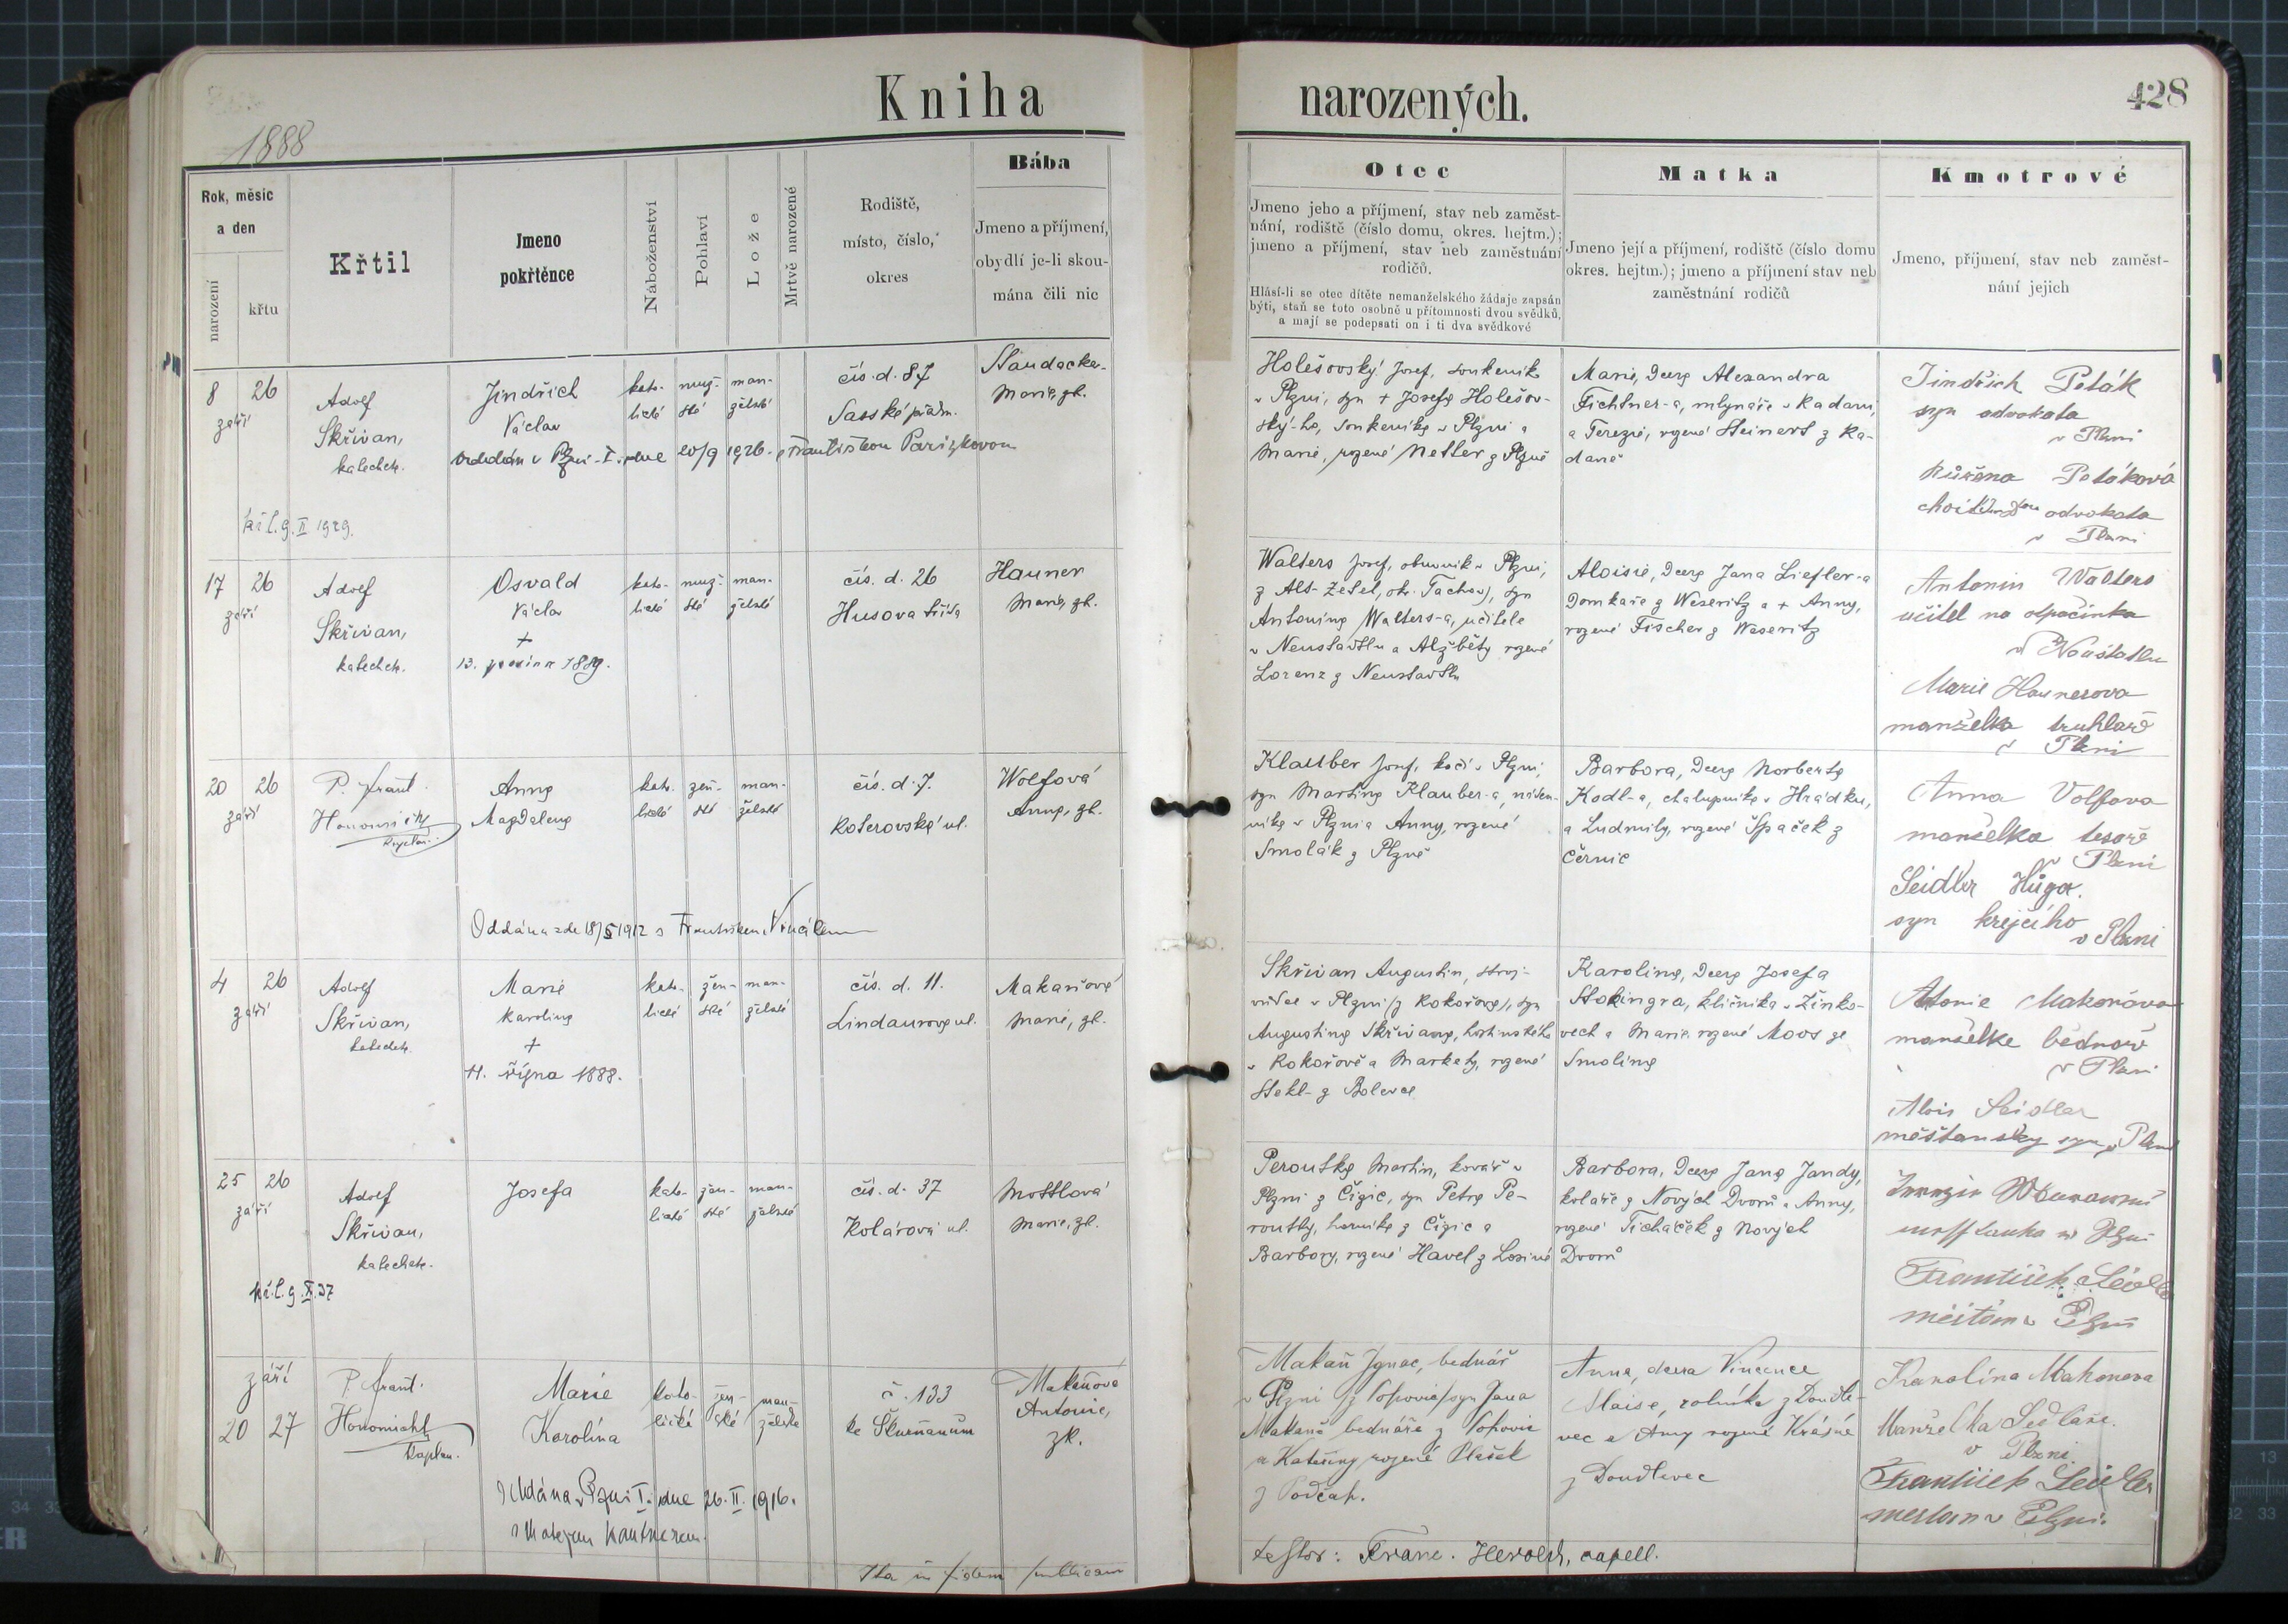 Kniha narozených.
428
1888
Rok, měsíc
a den
narození
křtu
Křtil
Jmeno
pokřtěnce
Náboženství
Pohlaví
Lože
Mrtvě narozené
Rodiště,
místo, číslo,
okres
Bába
Jmeno a příjmení,
obydlí je-li skou-
mána čili nic
Otec
Jmeno jeho a příjmení, stav neb zaměst-
nání, rodiště (číslo domu, okres. hejtm.);
jmeno a příjmení, stav neb zaměstnání
rodičů.
Hlásí-li se otec dítěte nemanželského žádaje zapsán
býti, staň se toto osobně u přítomnosti dvou svědků,
a mají se podepsati on i ti dva svědkové
Matka
Jmeno její a příjmení, rodiště (číslo domu
okres. hejtm.); jmeno a příjmení stav neb
zaměstnání rodičů
Kmotrové
Jmeno, příjmení, stav neb zaměst-
nání jejich
8 26
září
Adolf
Skřivan,
katechet.
Jindřich
Václav
kato-
lické
muž-
ské
man-
želské
čís. d. 87
Saské předm.
Marie, zk.
oddán v Plzni - I. dne 20/9 1926 s Františkou Pařízkovou
Holešovský Josef, soukeník
v Plzni, syn + Josefa Holešov-
ský-ho, soukeníka v Plzni a
Marie, rozené Netter z Plzně
Marie, dcera Alexandra
Fichtner-a, mlynáře v Kadani,
a Terezie, rozené Steinert z Ka-
daně
Jindřich Peták
syn advokata
v Plzni
Růžena Petáková
advokata
v Plzni
17 26
září
Adolf
Skřivan,
katechet.
Osvald
Václav
+
13. prosince 1889.
kato-
lické
muž-
ské
man-
želské
čís. d. 26
Husova třída
Hauner
Marie, zk.
Walters Josef, obuvník v Plzni,
z Alt-Zetel, okr. Tachov), syn
Antonína Walters-a, učitele
v Neustadtlu a Alžběty rozené
Lorenz z Neustadtlu
Aloisie, dcera Jana Liefler-a
domkaře z Weseritz a + Anny,
rozené Fischer z Weseritz
Antonín Walters
učitel na odpočinku
v Neustadtlu
Marie Haunerova
manželka truhlář
v Plzni
20 26
září
P. Frant.
Honomichl
kaplan.
Anna
Magdalena
kato-
lické
žen-
ské
man-
želské
čís. d. 7.
Koterovská ul.
Wolfová
Anna, zk.
Oddána zde 18/5 1912 s Františkem
Klauber Josef, kočí v Plzni,
syn Martina Klauber-a,
v Plzni a Anny, rozené
Smolák z Plzně
Barbora, dcera Norberta
Kodl-a, chalupníka v Hrádku,
a Ludmily, rozené Špaček z
Černic
Anna Volfova
manželka tesaře
v Plzni
Seidler Hugo.
syn krejčího
v Plzni
4 26
září
Adolf
Skřivan,
katechet.
Marie
Karolina
+
11. října 1888.
kato-
lické
žen-
ské
man-
želské
čís. d. 11.
Lindaurova ul.
Makaňová
Marie, zk.
Skřivan Augustin, stroj-
vůdce v Plzni (z Rokořova), syn
Augustina Skřivana, hostinského
v Rokořově a Markety, rozené
Stekl- z Bolevce
Karolina, dcera Josefa
Stokingra, klíčníka v Žinko-
vech a Marie, rozené Moos ze
Smoliny
manželka bednáře
v Plzni
Alois Seidler
měšťanský syn v Plzni
25 26
září
Adolf
Skřivan,
katechet.
Josefa
kato-
lické
žen-
ské
man-
želské
čís. d. 37
Kolárova ul.
Mottlová
Marie, zk.
Peroutka Martin, kovář v
Plzni z Čižic, syn Petra Pe-
routky, horníka z Čižic a
Barbory, rozené Havel z Losiné
Barbora, dcera Jana Jandy,
koláře z Nových Dvorů a Anny,
rozené Ticháček z Nových
Dvorů
František Seidler
měšťan v Plzni
září
20 27
P. Frant.
Honomichl
kaplan.
Marie
Karolína
kato-
lické
žen-
ské
man-
želské
č. 133
ke Škvrňanům
Makaňova
Antonie,
zk.
Oddána v Plzni I. dne 26. II. 1916.
s Matejem Kautnerem.
Makaň Ignac, bednář
v Plzni syn Jana
Makaně bednáře z
a Kateřiny rozené
Anna, dcera Vincence
Slaise, rolníka z Doudle-
vec a Anny rozené Krásné
z Doudlevec
Karolína Makonova
Manželka Sedlaře.
v Plzni.
František Seidler
mestan v Plzni.
Ita in fidem publicam
testor: Franc. Herold, capell.